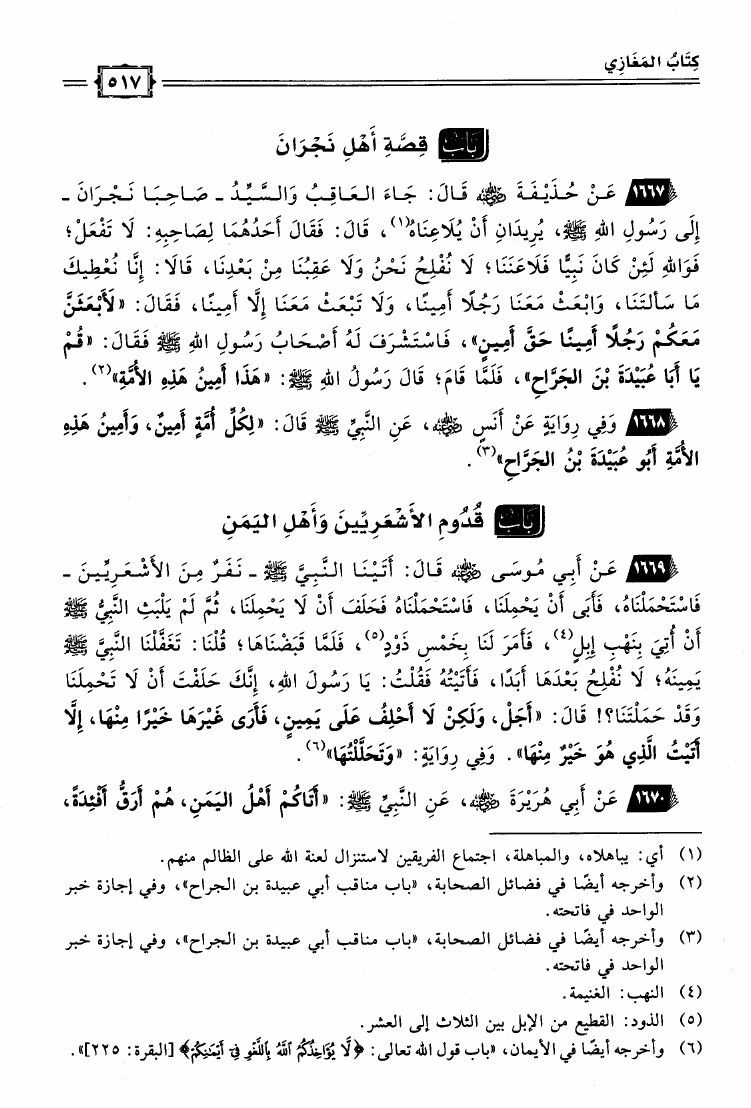 كِتَابُ المَغَازِي
٥١٧
بَابُ قِصَّةِ أَهْلِ نَجْرَانَ
١٦٦٧ عَنْ حُذَيْفَةَ رضي الله عنه قَالَ: جَاءَ العَاقِبُ وَالسَّيِّدُ ـ صَاحِبَا نَجْرَانَ ـ
إِلَى رَسُولِ اللهِ ﷺ، يُرِيدَانِ أَنْ يُلَاعِنَاهُ(١)، قَالَ: فَقَالَ أَحَدُهُمَا لِصَاحِبِهِ: لَا تَفْعَلْ؛
فَوَاللهِ لَئِنْ كَانَ نَبِيًّا فَلَاعَنَنَا؛ لَا نُفْلِحُ نَحْنُ وَلَا عَقِبُنَا مِنْ بَعْدِنَا، قَالَا: إِنَّا نُعْطِيكَ
مَا سَأَلْتَنَا، وَابْعَثْ مَعَنَا رَجُلًا أَمِينًا، وَلَا تَبْعَثْ مَعَنَا إِلَّا أَمِينًا، فَقَالَ: «لَأَبْعَثَنَّ
مَعَكُمْ رَجُلًا أَمِينًا حَقَّ أَمِينٍ»، فَاسْتَشْرَفَ لَهُ أَصْحَابُ رَسُولِ اللهِ ﷺ فَقَالَ: «قُمْ
يَا أَبَا عُبَيْدَةَ بْنَ الجَرَّاحِ»، فَلَمَّا قَامَ؛ قَالَ رَسُولُ اللهِ ﷺ: «هَذَا أَمِينُ هَذِهِ الأُمَّةِ»(٢).
١٦٦٨ وَفِي رِوَايَةٍ عَنْ أَنَسٍ رضي الله عنه، عَنِ النَّبِيِّ ﷺ قَالَ: «لِكُلِّ أُمَّةٍ أَمِينٌ، وَأَمِينُ هَذِهِ
الأُمَّةِ أَبُو عُبَيْدَةَ بْنُ الجَرَّاحِ»(٣).
بَابُ قُدُومِ الأَشْعَرِيِّينَ وَأَهْلِ اليَمَنِ
١٦٦٩ عَنْ أَبِي مُوسَى رضي الله عنه قَالَ: أَتَيْنَا النَّبِيَّ ﷺ ـ نَفَرٌ مِنَ الأَشْعَرِيِّينَ ـ
فَاسْتَحْمَلْنَاهُ، فَأَبَى أَنْ يَحْمِلَنَا، فَاسْتَحْمَلْنَاهُ فَحَلَفَ أَنْ لَا يَحْمِلَنَا، ثُمَّ لَمْ يَلْبَثِ النَّبِيُّ ﷺ
أَنْ أُتِيَ بِنَهْبِ إِبِلٍ(٤)، فَأَمَرَ لَنَا بِخَمْسِ ذَوْدٍ(٥)، فَلَمَّا قَبَضْنَاهَا؛ قُلْنَا: تَغَفَّلْنَا النَّبِيَّ ﷺ
يَمِينَهُ؛ لَا نُفْلِحُ بَعْدَهَا أَبَدًا، فَأَتَيْتُهُ فَقُلْتُ: يَا رَسُولَ اللهِ، إِنَّكَ حَلَفْتَ أَنْ لَا تَحْمِلَنَا
وَقَدْ حَمَلْتَنَا؟! قَالَ: «أَجَلْ، وَلَكِنْ لَا أَحْلِفُ عَلَى يَمِينٍ، فَأَرَى غَيْرَهَا خَيْرًا مِنْهَا، إِلَّا
أَتَيْتُ الَّذِي هُوَ خَيْرٌ مِنْهَا». وَفِي رِوَايَةٍ: «وَتَحَلَّلْتُهَا»(٦).
١٦٧٠ عَنْ أَبِي هُرَيْرَةَ رضي الله عنه، عَنِ النَّبِيِّ ﷺ: «أَتَاكُمْ أَهْلُ اليَمَنِ، هُمْ أَرَقُّ أَفْئِدَةً،
(١) أي: يباهلاه، والمباهلة، اجتماع الفريقين لاستنزال لعنة الله على الظالم منهم.
(٢) وأخرجه أيضًا في فضائل الصحابة، «باب مناقب أبي عبيدة بن الجراح»، وفي إجازة خبر
الواحد في فاتحته.
(٣) وأخرجه أيضًا في فضائل الصحابة، «باب مناقب أبي عبيدة بن الجراح»، وفي إجازة خبر
الواحد في فاتحته.
(٤) النهب: الغنيمة.
(٥) الذود: القطيع من الإبل بين الثلاث إلى العشر.
(٦) وأخرجه أيضًا في الأيمان، «باب قول الله تعالى: ﴿لَّا يُؤَاخِذُكُمُ ٱللَّهُ بِٱللَّغْوِ فِىٓ أَيْمَـٰنِكُمْ﴾ [البقرة: ٢٢٥]».